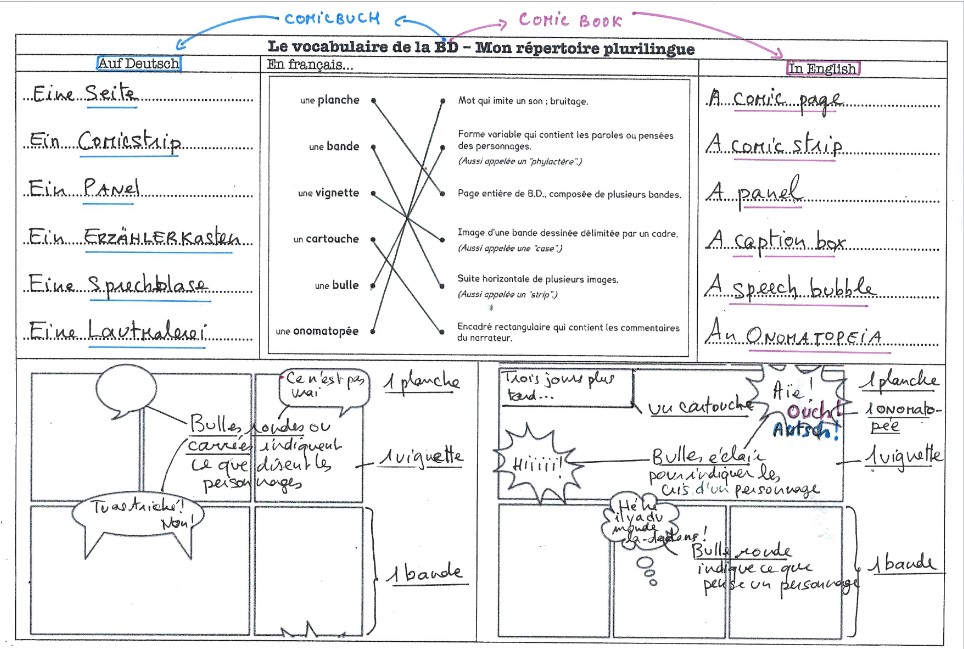 COMICBUCH
COMIC BOOK
Le vocabulaire de la BD – Mon répertoire plurilingue
Auf Deutsch
En français...
In English
Eine Seite
Ein Comicstrip
Ein PANEl
Ein ERZÄHLERKasten
Eine Sprechblase
Eine Lautmalerei
une planche
une bande
une vignette
un cartouche
une bulle
une onomatopée
Mot qui imite un son ; bruitage.
Forme variable qui contient les paroles ou pensées
des personnages.
(Aussi appelée un "phylactère".)
Page entière de B.D., composée de plusieurs bandes.
Image d'une bande dessinée délimitée par un cadre.
(Aussi appelée une "case".)
Suite horizontale de plusieurs images.
(Aussi appelée un "strip".)
Encadré rectangulaire qui contient les commentaires
du narrateur.
A comic page
A comic strip
A panel
A caption box
A speech bubble
An ONOMATOPEIA
Ce n'est pas
vrai
1 planche
Bulles rondes ou
carrées indiquent
ce que disent les
personnages
1 vignette
Tu as triché!
Non!
1 bande
Trois jours plus
tard...
un cartouche
Aïe !
Ouch!
Autsch!
1 planche
1 onomato-
pée
1 vignette
Hiiiiii!
Bulles éclair
pour indiquer les
cris d'un personnage
Hé hé
il y a du
monde
là-dedans!
Bulle ronde
indique ce que
pense un personnage
1 bande